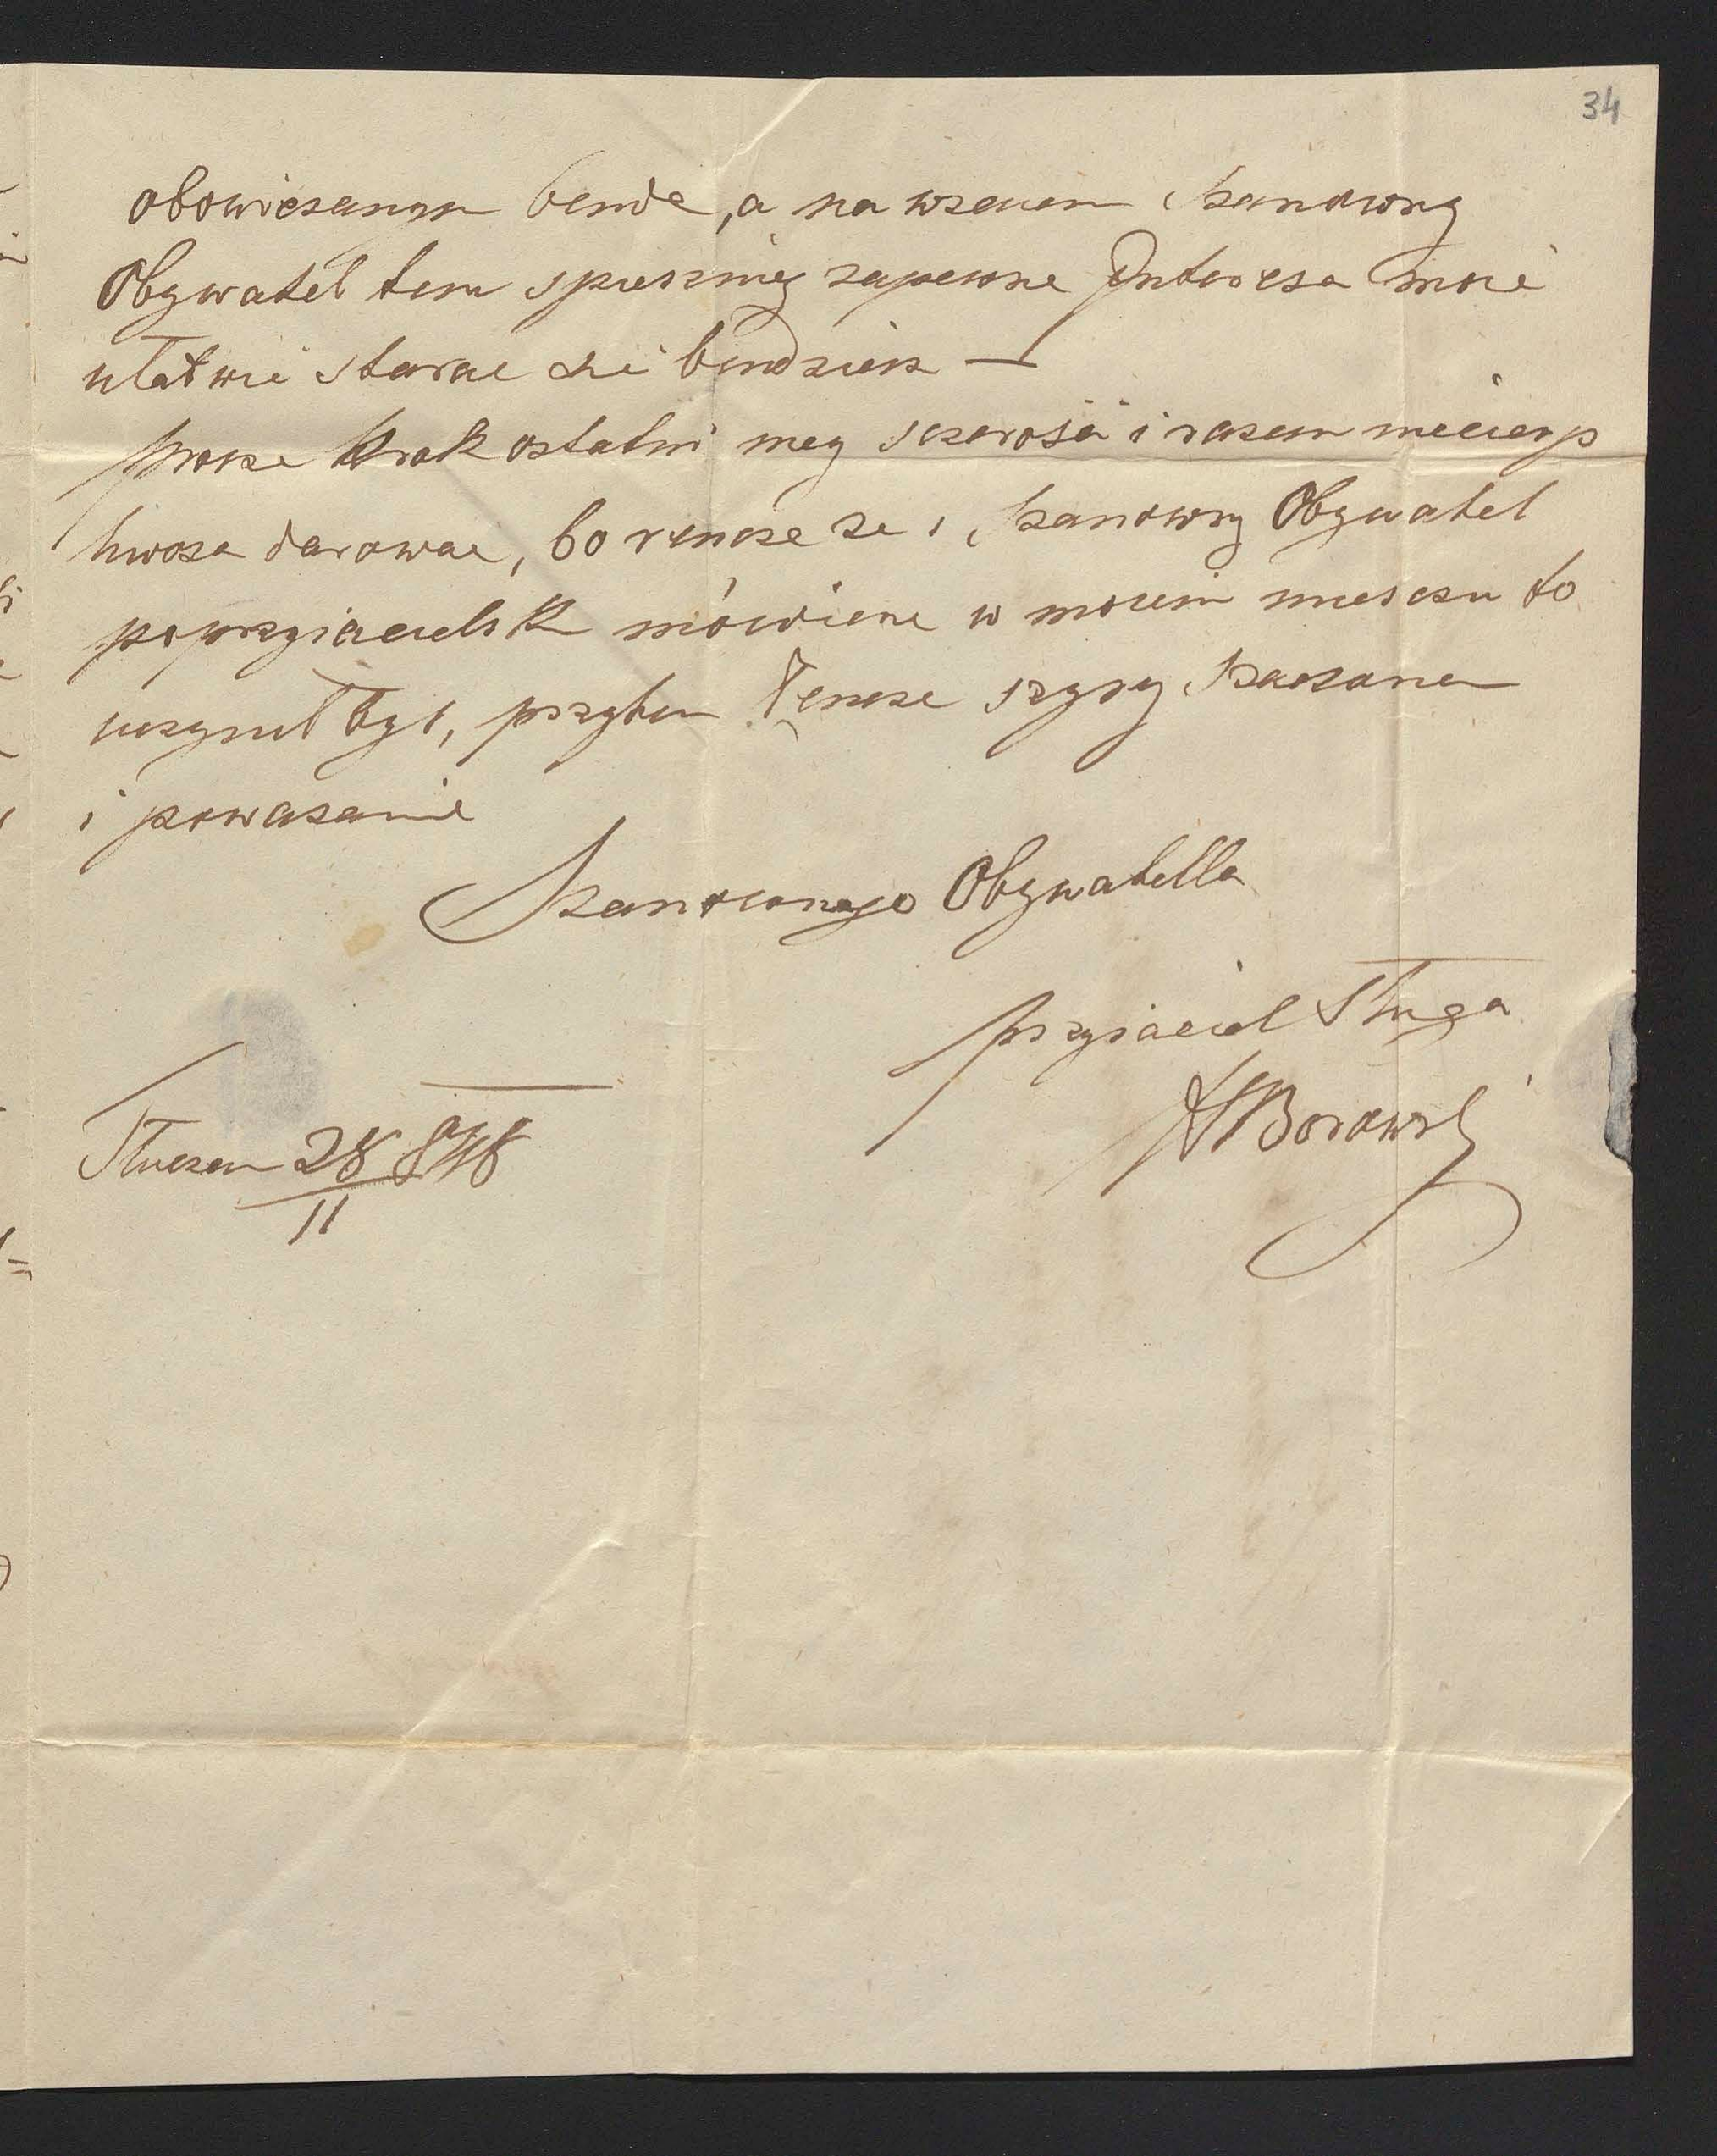 34
obowiesanym bende, a na wzaiem Szanowny
Obywatel tem spieszniey zapewne Interesa moie
ułatwic starac sie bendziesz —
prosze krok ostatni mey sczerosci i razem niecierp
liwosc darowac, bo rencze ze i Szanowny Obywatel
poprzyiacielsk mówiene w moiem miesczu to
uczynił był, przytem łencze szyry Szaczunek
i powazanie
Szanownego Obywatella
przyiaciel Sługa
Borowski
28 848
11